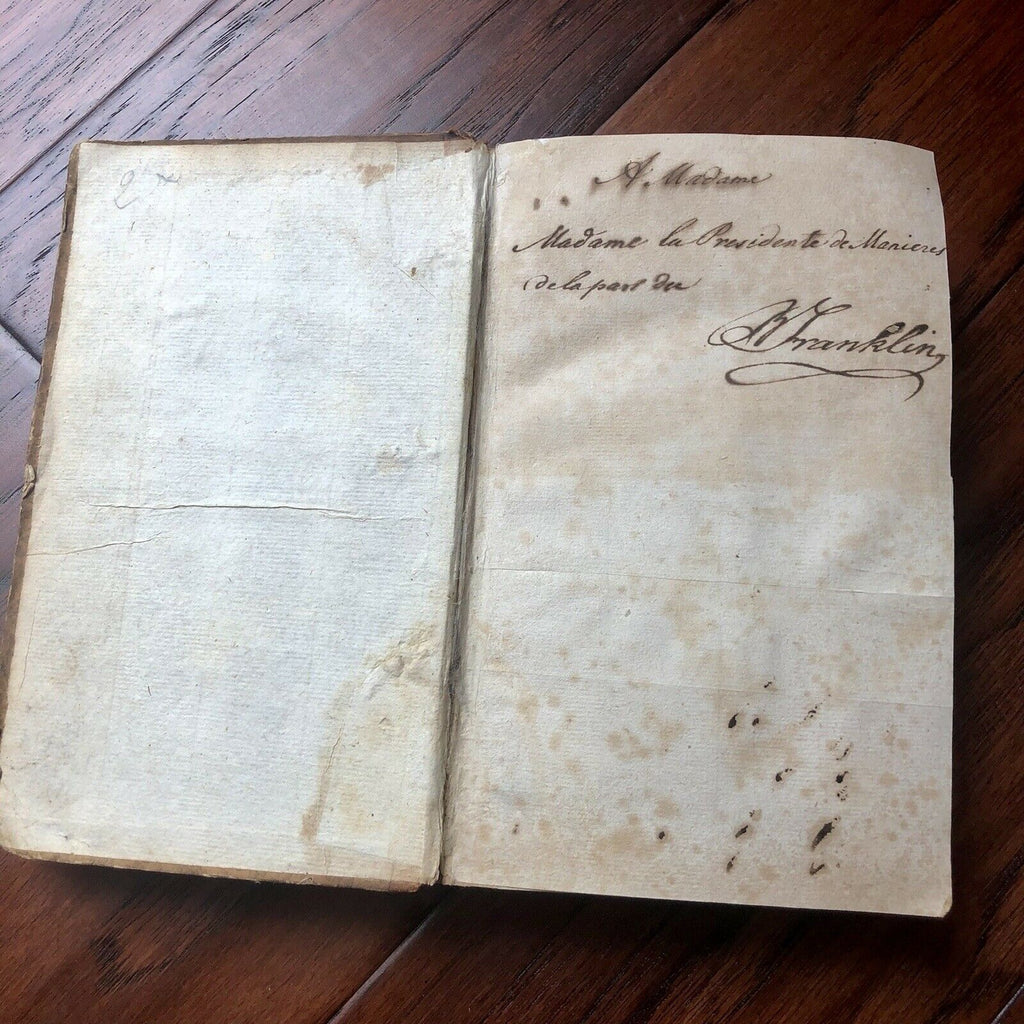 A Madame
Madame la Presidente de Manieres
de la part du
B Franklin